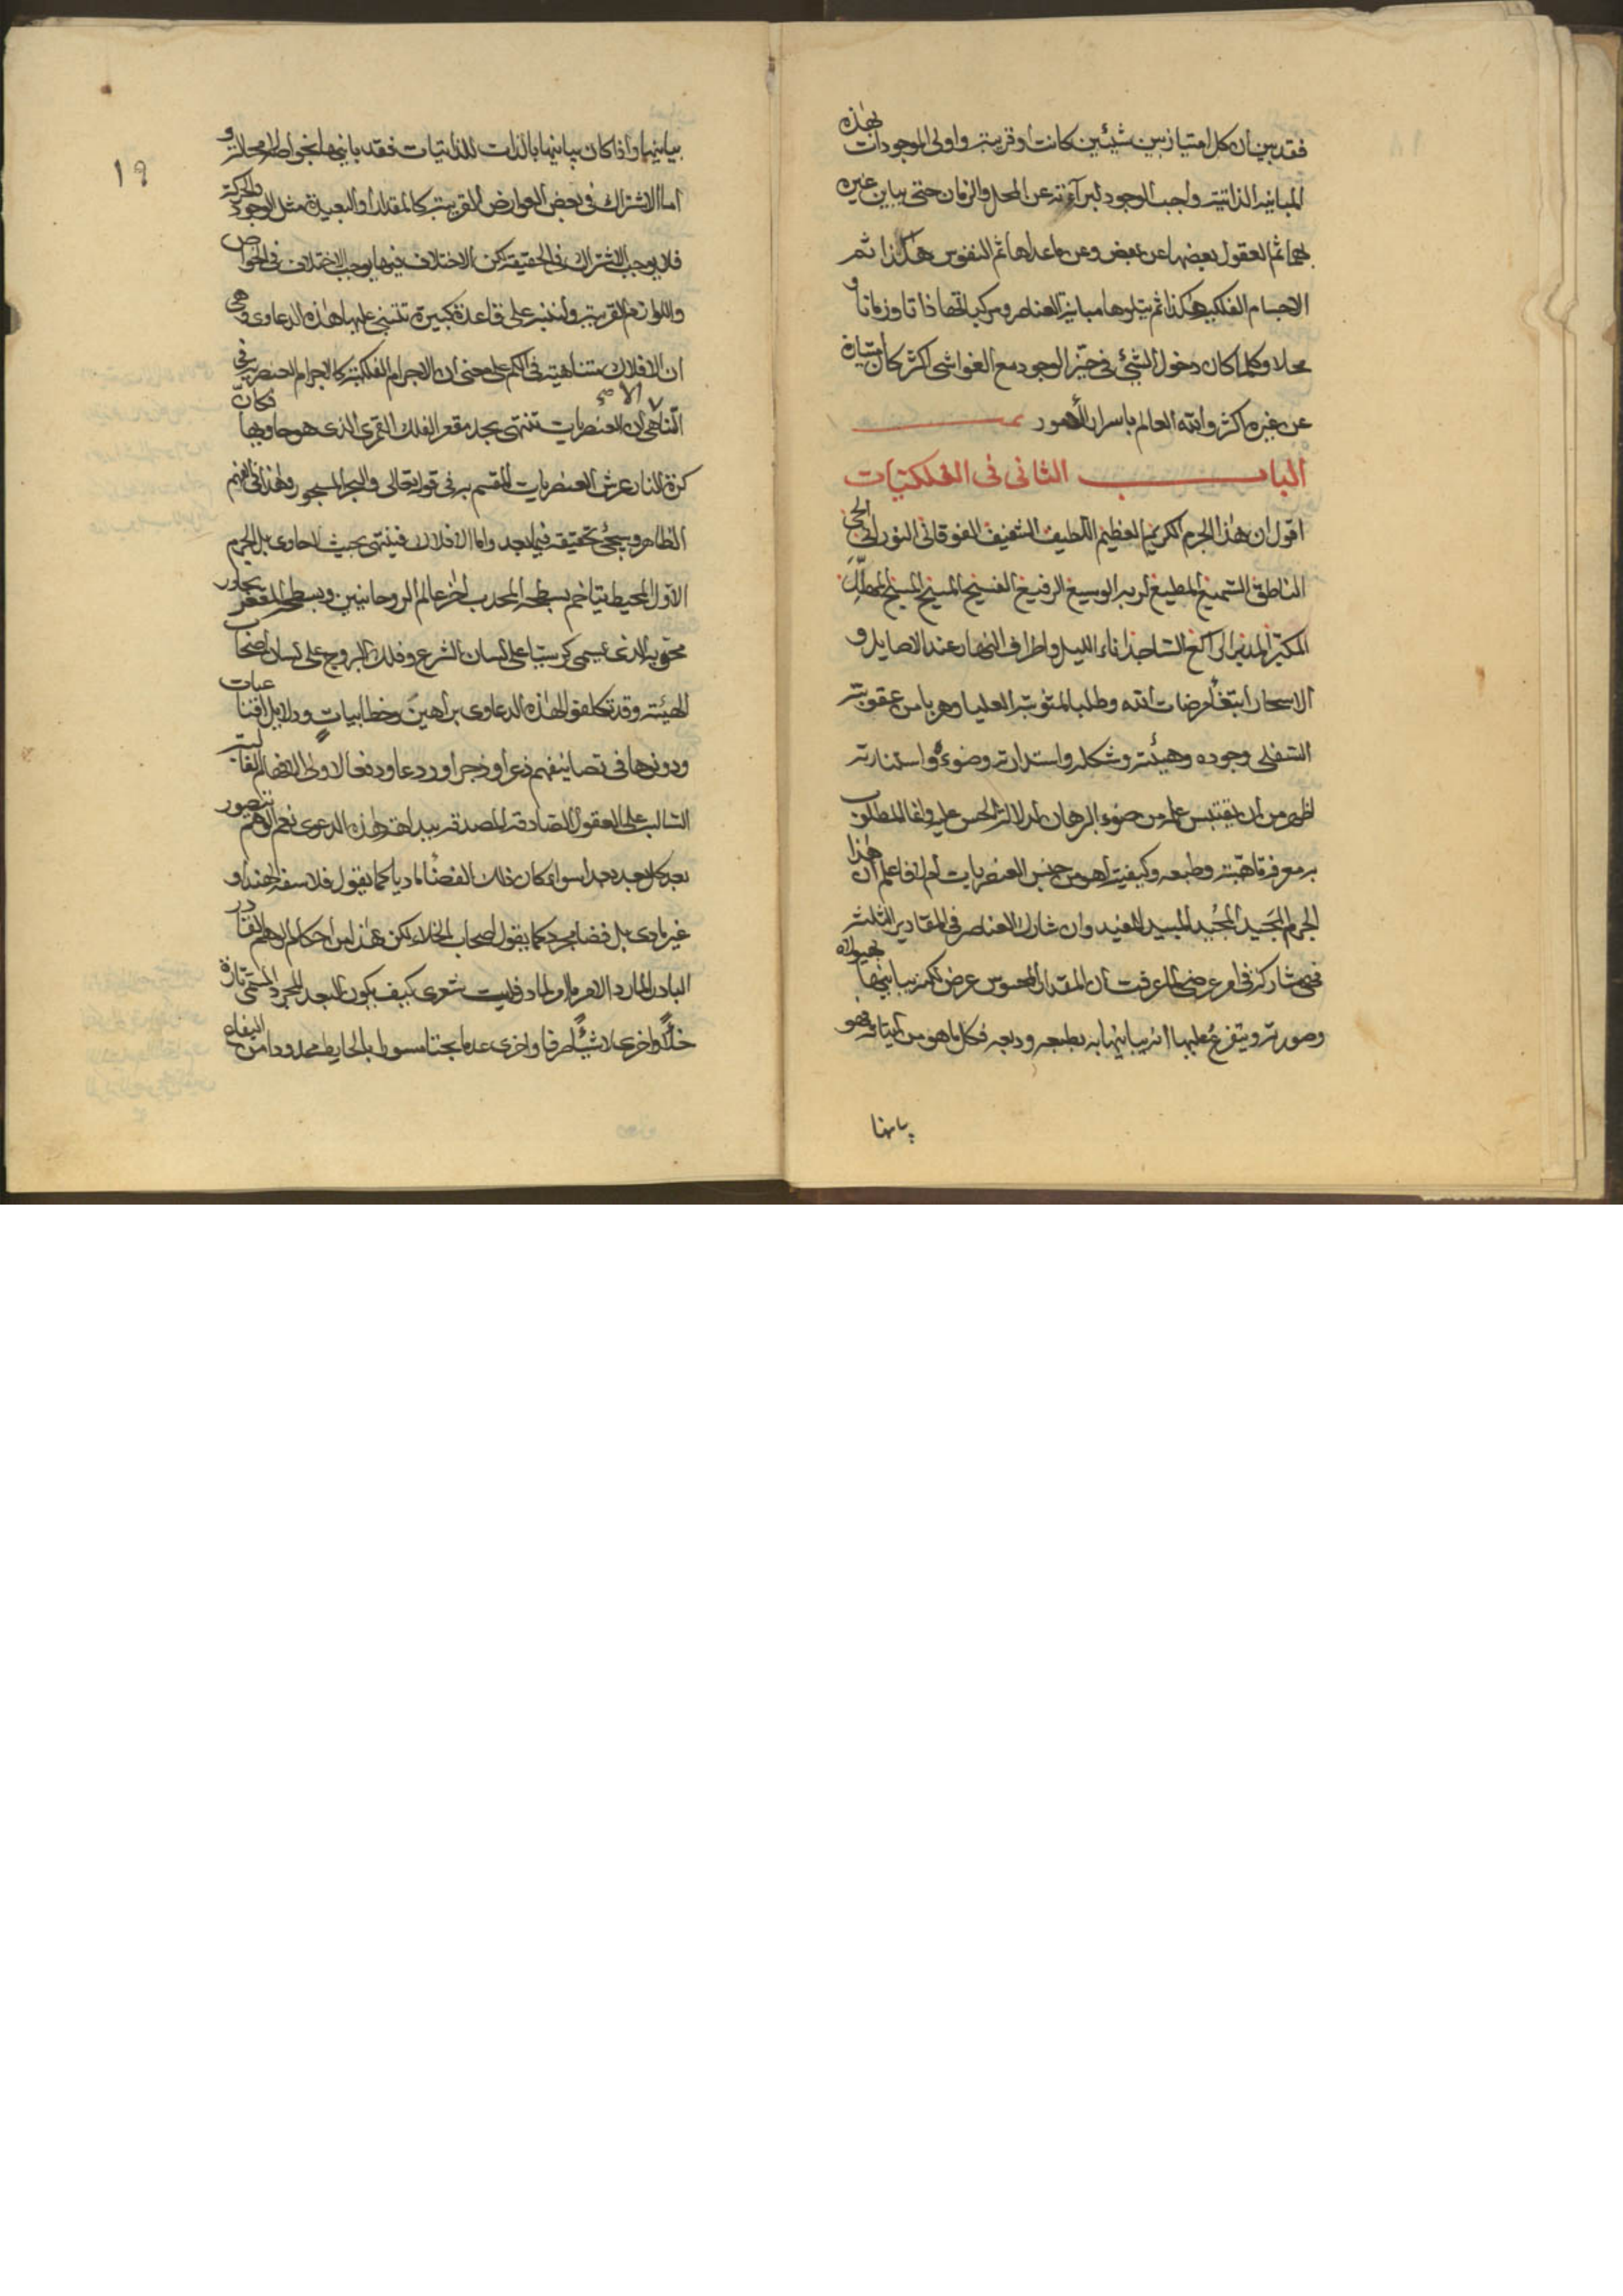 فقد بين ان كل امتياز بين شيئين كانت او قريبة واولى الموجودات بهذه
المباينة الذاتية واجب الوجود لبرآءته عن المحل والزمان حتى يباين غيره
بهما ثم العقول بعضها عن بعض وعن ماعداها ثم النفوس هكذا ثم
الاجسام الفلكية هكذا ثم يتلوها مباينة العناصر ومركباتها ذاتا وزمانا و
محلا وكلما كان دخول الشئ فى حيز الوجود مع الغواشى اكثر كان امتيازه
عن غيره اكثر والله العالم باسرار الأمور
الباب الثانى فى الفلكيات
اقول ان هذا الجرم الكريم العظيم اللطيف الشفيف الفوقانى النورانى الحى
الناطق السميع المطيع لربه الوسيع الرفيع الفسيح المسيح المسبح المهلل
المكبر المدبر الراكع الساجد اناء الليل واطراف النهار عند الاصايل و
الاسحار ابتغاء مرضات الله وطلبا لمثوبته العليا وهربا من عقوبته
السفلى وجوده وهيئته وشكله واستدارته وضوءه واستنارته
اظهر من ان يقتبس علمه من ضوء البرهان لدلالة الحس عليه وانما المطلوب
به معرفة ماهيته وطبعه وكيفيته اهو من جنس العنصريات ام لا فاعلم ان هذا
الجرم المجيد المبيد المفيد وان شارك العناصر فى المقادير الثلثة
فهى مشاركة فى امر عرضى لما عرفت ان المقدار المحسوس عرض لكنه يباينها بهيولاه
وصورته ويتفرع عليها انه يباينها به بطبعه وبعه فكل ما هو من فهو
يباينها
١٩
يباينها واذا كان يباينها بالذات للذاتيات فقد باينها بخواصه لا محالة و
اما الاشتراك فى بعض العوارض القريبة كالمقدار او البعيدة مثل الوجود والحركة
فلا يوجب الاشتراك فى الحقيقة لكن الاختلاف فيها يوجب الاختلاف فى الخواص
واللوازم القريبة ولننبه على قاعدة كبيرة تبتنى عليها هذه الدعاوى وهى
ان الافلاك متناهية فى الكم على معنى ان الاجرام الفلكية كالاجرام العنصرية فى
التناهى لان العنصريات تنتهى بحد مقعر الفلك القمرى الذى هو حاويها فكان
كرة النار عرش العنصريات المقسم به فى قوله تعالى والبحر المسجور وهذا فى الفهم
الظاهر ويجئ تحقيقه فيما بعد واما الافلاك فينتهى بحيث لا حاوى بل الجرم
الاول المحيط يتاخم بسطحه المحدب اخر عالم الروحانيين وبسطحه المقعر يجاور
محويه الذى يسمى كرسيا على لسان الشرع وفلك البروج على لسان اصحاب
الهيئة وقد تكلفوا لهذه الدعاوى براهين وخطابيات ودلايل اقناعيات
ودونوها فى تصانيفهم ذعرا وزجرا وردعا ودفعا لاولى الاوهام الغالبة
السالبة على العقول الصادقة المصدقة ببداهة هذه الدعوى نعم الوهم يتصور
بعد كل بعد بعدا سواء كان ذلك الفضا ماديا كما يقول فلاسفة الهند او
غير مادى بل فضا مجرد كما يقول اصحاب الخلاء لكن هذا من احكام الوهم القادر
البادر المارد الامر ما او لمادة وليت شعرى كيف يكون البعد المجرد المسمى تارة
خلاء واخرى لا شيئا صرفا واخرى عدما بحتا مسورا بالحايط محدودا من البقاع